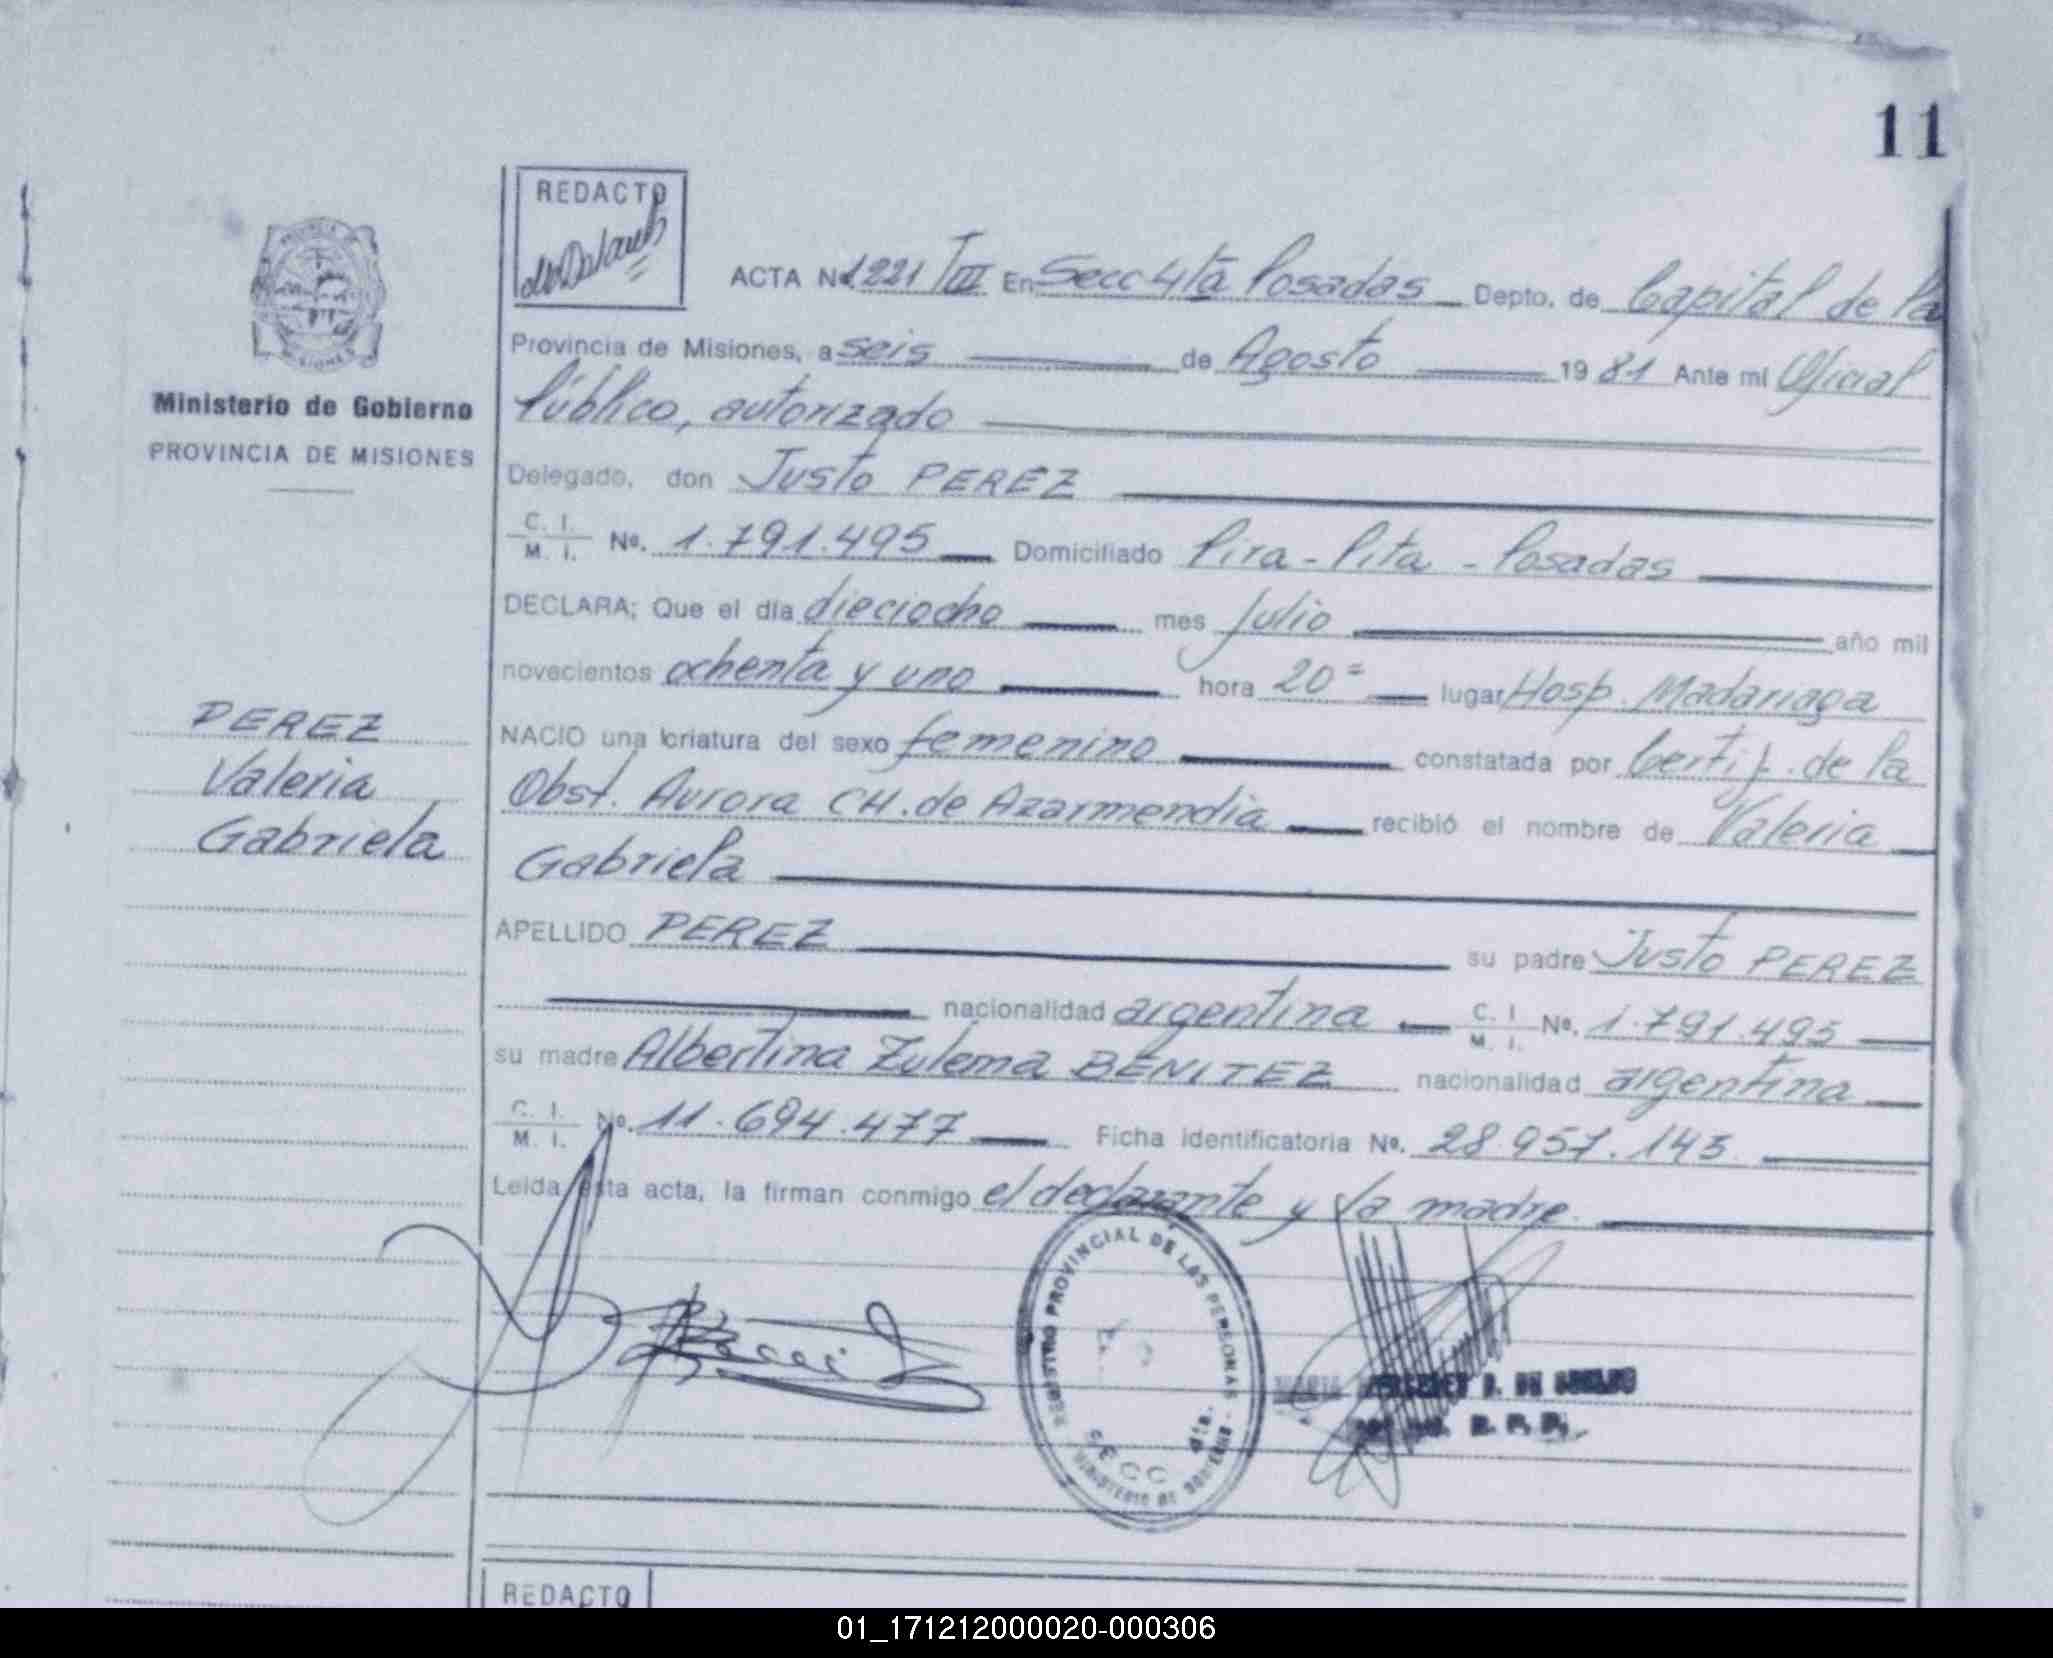 11
REDACTO
ACTA Nº 1221 TIII En Secc 4ta Posadas Depto. de Capital de la
Provincia de Misiones, a seis de Agosto 19 81 Ante mi Oficial
Ministerio de Gobierno
Público, autorizado
PROVINCIA DE MISIONES
Delegado, don Justo PEREZ
C. I. M. I. Nº. 1.791.495 Domiciliado Pira-Pita - Posadas
DECLARA; Que el día dieciocho mes Julio año mil
novecientos ochenta y uno hora 20= lugar Hosp. Madariaga
PEREZ
Valeria
Gabriela
NACIO una criatura del sexo femenino constatada por Certif. de la
Obst. Aurora CH. de Azarmendia recibió el nombre de Valeria
Gabriela
APELLIDO PEREZ su padre Justo PEREZ
nacionalidad argentina C. I. M. I. Nº. 1.791.495
su madre Albertina Zulema BENITEZ nacionalidad argentina
C. I. M. I. Nº. 11.694.477 Ficha identificatoria Nº. 28.957.143
Leida esta acta, la firman conmigo el declarante y la madre.
REGISTRO PROVINCIAL DE LAS PERSONAS
SECC 4ta.
MINISTERIO DE GOBIERNO
REDACTO
01_171212000020-000306